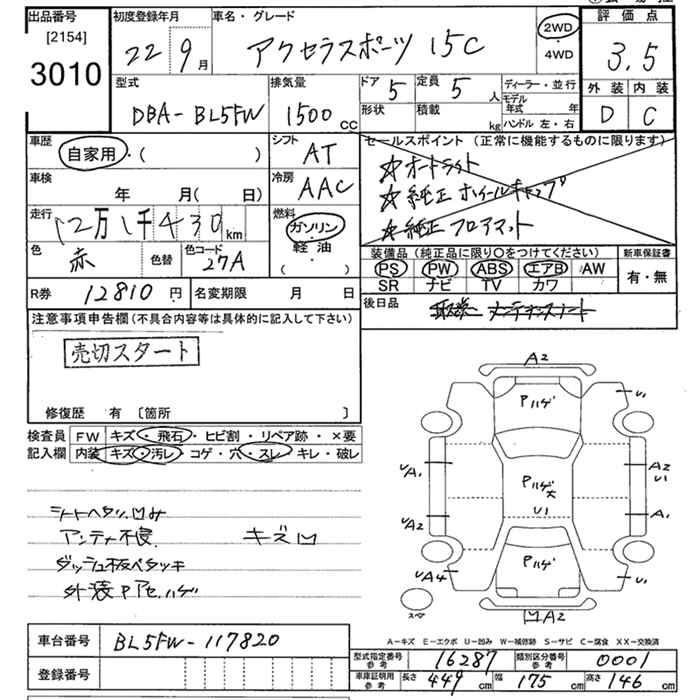 出品番号 初度登録年月 車名・グレード 評価点
[2154]
3010
22年9月 アクセラスポーツ 15C 2WD・4WD 3.5
型式 排気量 ドア 5 定員 5人 ディーラー・並行 外装 内装
DBA-BL5FW 1500cc 形状 積載 kg モデル年式 年 D C
ハンドル 左・右
車歴 自家用・( ) シフト AT セールスポイント (正常に機能するものに限ります)
☆オートライト
車検 年 月( 日) 冷房 AAC ☆純正ホイールキャップ
走行 12万1千430km 燃料 ガソリン ☆純正フロアマット
軽油
・( )
色 赤 色替 色コード 27A 装備品 (純正品に限り○をつけてください) 新車保証書
PS PW ABS エアB AW 有・無
SR ナビ TV カワ
R券 12810円 名変期限 月 日 後日品 取説 メンテナンスノート
注意事項申告欄(不具合内容等は具体的に記入して下さい)
売切スタート
修復歴 有 [箇所 ]
検査員 FW キズ・飛石・ヒビ割・リペア跡・×要
記入欄 内装 キズ・汚レ・コゲ・穴・スレ・キレ・破レ
シートヘタリ凹み
アンテナ不侵 キズ凹
ダッシュ板ベタツキ
外装Pアセ、ハゲ
A2
Pハゲ
U1
UA1
A2
U1
Pハゲ大
U1
UA2
A1
UA4
Pハゲ
U1
スペア
WA2
A-キズ E-エクボ U-凹み W-補修跡 S-サビ C-腐食 XX-交換済
車台番号 BL5FW-117820
型式指定番号 参考 16287 類別区分番号 参考 0001
登録番号
車庫証明用 参考 長さ 449cm 幅 175cm 高さ 146cm